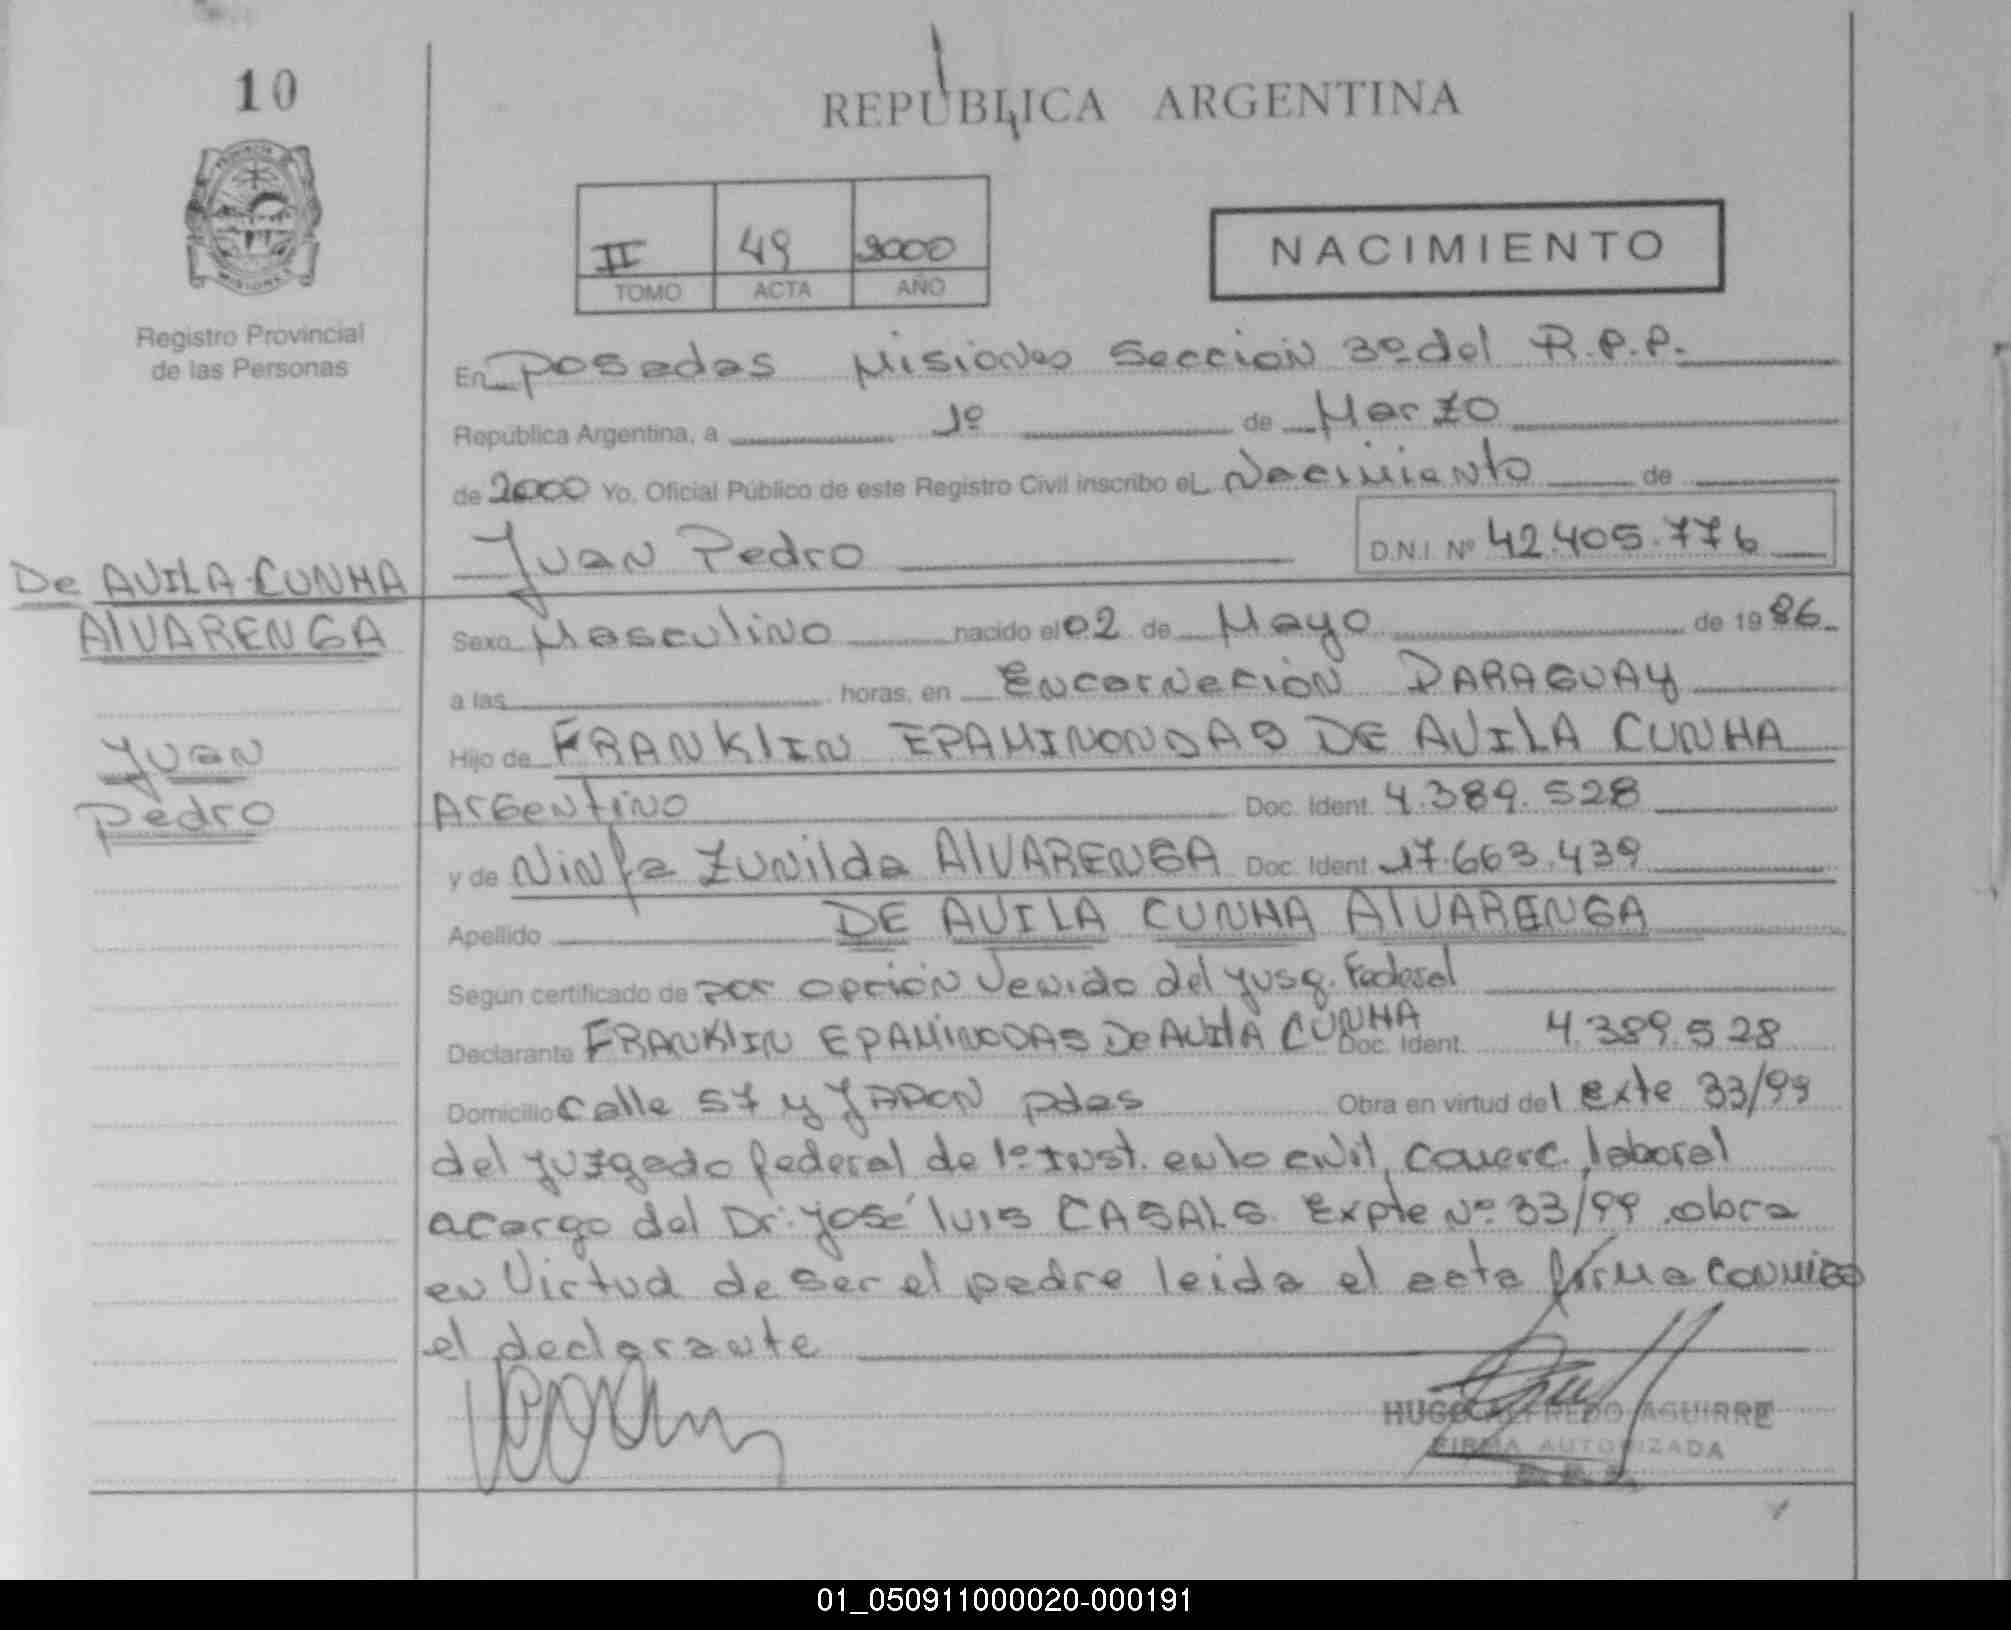 10
REPUBLICA ARGENTINA
II 49 2000
TOMO ACTA AÑO
NACIMIENTO
Registro Provincial
de las Personas
En Posadas Misiones Sección 3º del R.P.P.
República Argentina, a 1º de Marzo
de 2000 Yo, Oficial Público de este Registro Civil inscribo el Nacimiento de
Juan Pedro D.N.I. Nº 42.405.776
De AVILA CUNHA
ALVARENGA
Juan
Pedro
Sexo Masculino nacido el 02 de Mayo de 1986
a las horas, en Encarnación PARAGUAY
Hijo de FRANKLIN EPAMINONDAS DE AVILA CUNHA
Argentino Doc. Ident. 4.389.528
y de Ninfa Zunilda ALVARENGA Doc. Ident. 17.663.439
Apellido DE AVILA CUNHA ALVARENGA
Según certificado de por opción venido del Jusg. Federal
Declarante FRANKLIN EPAMINODAS De AVILA CUNHA Doc. Ident. 4.389.528
Domicilio Calle 57 y JAPON pdas Obra en virtud del Exte 33/99
del juzgado federal de 1º Inst. en lo civil, comerc, laboral
acargo del Dr: José Luis CASALS. Expte Nº 33/99 obra
en Virtud de ser el padre leida el acta firma conmigo
el declarante
HUGO ALFREDO AGUIRRE
FIRMA AUTORIZADA
01_050911000020-000191